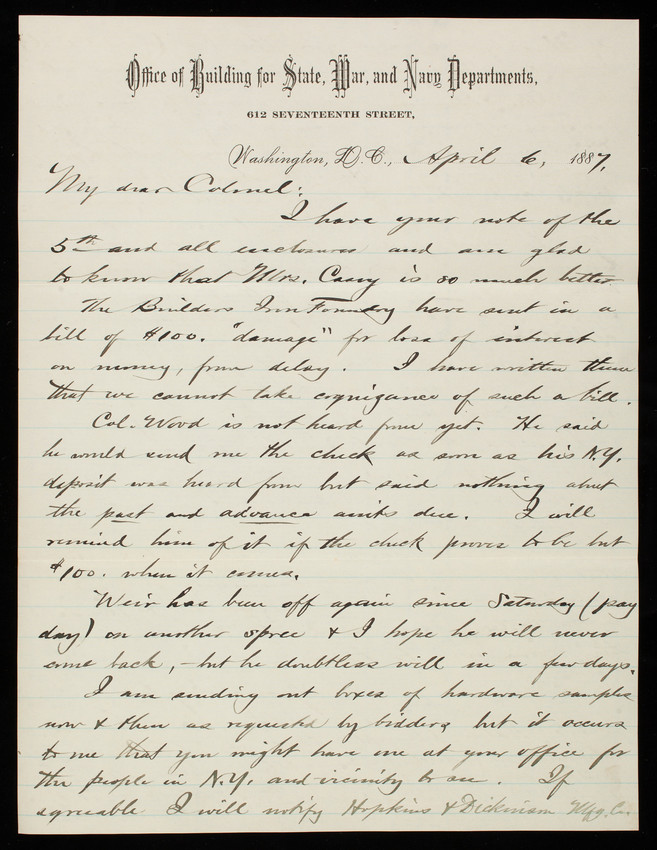 Office of Building for State, War, and Navy Departments,
612 SEVENTEENTH STREET,
Washington, D.C., April 6, 1887.
My dear Colonel:
I have your note of the
5th and all enclosures and am glad
to know that Mrs. Casey is so much better
The Builders Iron Foundry have sent in a
bill of $100. "damage" for loss of interest
on money, from delay. I have written them
that we cannot take cognizance of such a bill.
Col. Wood is not heard from yet. He said
he would send me the check as soon as his N.Y.
deposit was heard from but said nothing about
the past and advance amts due. I will
remind him of it if the check proves to be but
$100. when it comes.
Weir has been off again since Saturday (pay
day) on another spree & I hope he will never
come back, - but he doubtless will in a few days.
I am sending out boxes of hardware samples
now & then as requested by bidders but it occurs
to me that you might have one at your office for
the people in N.Y. and vicinity to see. If
agreeable I will notify Hopkins & Dickinson Mfg. Co.